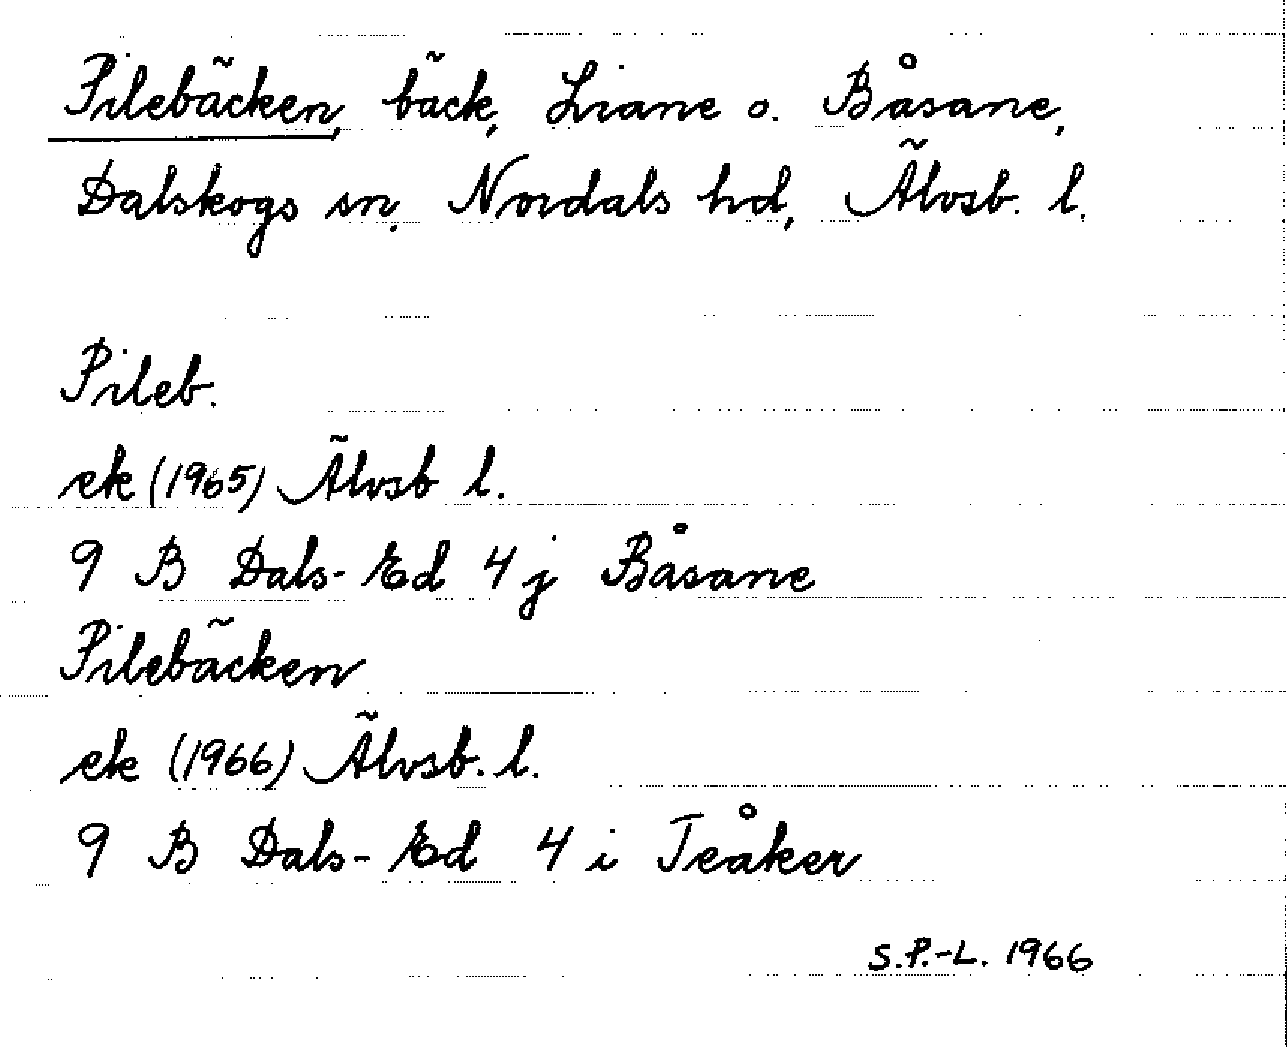 Pilebäcken, bäck, Liane o. Båsane,
Dalskogs sn, Nordals hd, Älvsb. l.
Pileb.
ek (1965) Älvsb l.
9 B Dals-Ed 4 j Båsane
Pilebäcken
ek (1966) Älvsb. l.
9 B Dals-Ed 4 i Teåker
S.P.-L. 1966